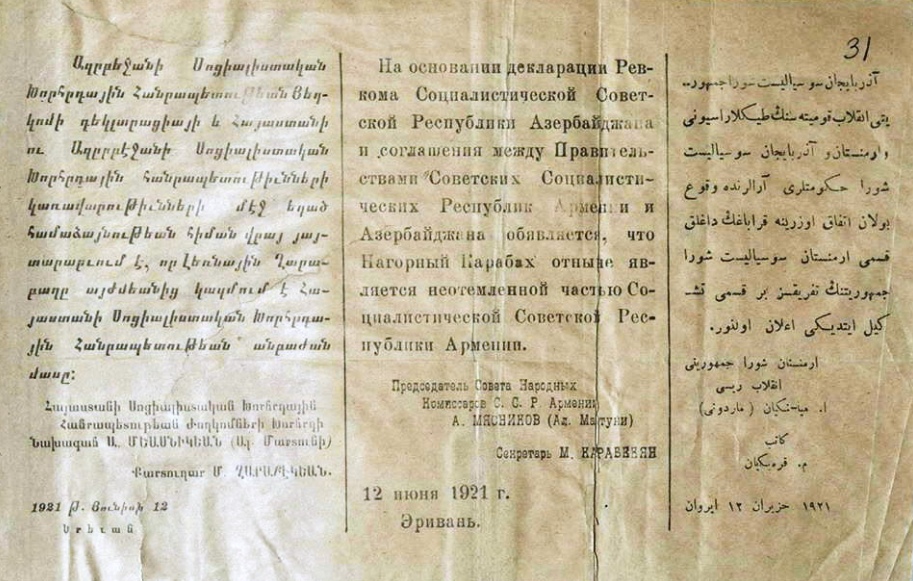 31
Ադրբէջանի Սոցիալիստական
Խորհրդային Հանրապետութեան Յեղ-
կոմի դեկլարացիայի և Հայաստանի
ու Ադրբէջանի Սոցիալիստական
Խորհրդային հանրապետութիւնների
կառավարութիւնների մէջ եղած
համաձայնութեան հիման վրայ յայ-
տարարւում է, որ Լեռնային Ղարա-
բաղը այժմեանից կազմում է Հա-
յաստանի Սոցիալիստական Խորհրդա-
յին Հանրապետութեան անբաժան
մասը:
Հայաստանի Սոցիալիստական Խորհրդային
Հանրապետութեան Ժողկոմների Խորհրդի
Նախագահ Ա. ՄԵԱՍՆԻԿԵԱՆ (Ալ. Մարտունի)
Քարտուղար Մ. ՂԱՐԱԲԵԿԵԱՆ.
1921 թ. Յունիսի 12
Երեւան
На основании декларации Рев-
кома Социалистической Совет-
ской Республики Азербайджана
и соглашения между Правитель-
ствами Советских Социалисти-
ческих Республик Армении и
Азербайджана обявляется, что
Нагорный Карабах отныне яв-
ляется неотемленной частью Со-
циалистической Советской Рес-
публики Армении.
Председатель Совета Народных
Комиссаров С. С. Р. Армении
А. МЯСНИКОВ (Ал. Мартуни)
Секретарь М. КАРАБЕКЯН
12 июня 1921 г.
Эривань.
آذربایجان سوسیالیست شورا جمهور-
یتی انقلاب قومیته سنڭ دیکلاراسیونی
و ارمنستان و آذربایجان سوسیالیست
شورا حکومتلری آرالرنده وقوع
بولان اتفاق اوزرینه قراباغڭ داغلق
قسمی ارمنستان سوسیالیست شورا
جمهوریتنڭ تفریقسز بر قسمی تشـ
کیل ایتدیکی اعلان اولنور.
ارمنستان شورا جمهوریتی
انقلاب ریسی
ا. میاسنکیان (مارتونی)
کاتب
م. قره‌بکیان
۱۹۲۱ حزیران ۱۲ ایروان